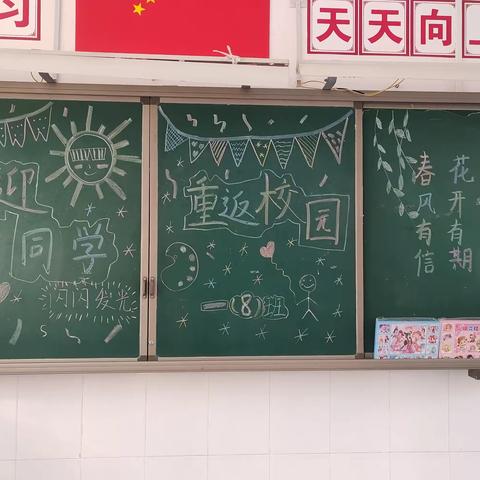 习
天天向上
迎
同学
闪闪发光
重返校园
一(8)班
春风有信
花开有期